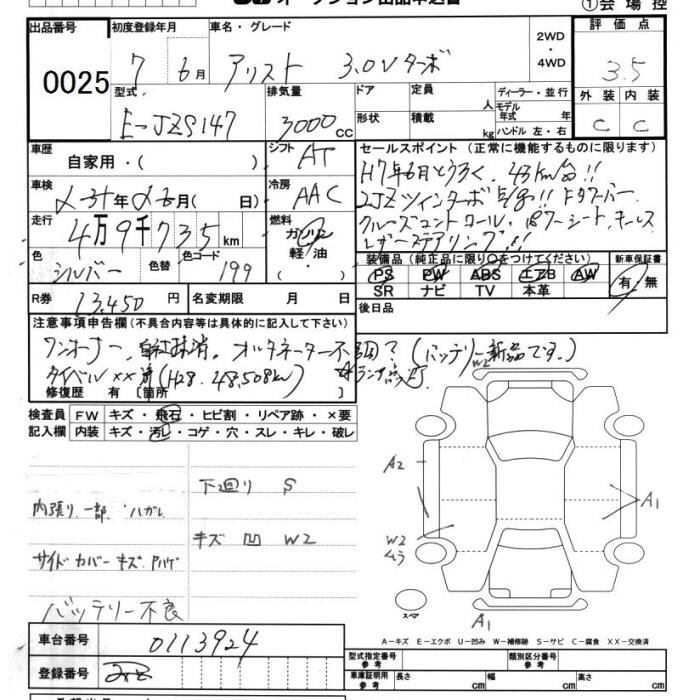 ①会場控
出品番号 初度登録年月 車名・グレード 2WD ・ 4WD 評価点
0025 7年 6月 アリスト 3.0Vターボ 3.5
型式 排気量 ドア 定員 人 ディーラー・並行 外装 内装
E-JZS147 3000cc 形状 積載 kg モデル年式 年 ハンドル 左・右 C C
車歴 自家用・( ) シフト AT セールスポイント(正常に機能するものに限ります)
H7年6月とうろく、4.9万km台!!
車検 年 月( 日) 冷房 AAC 2JZツインターボ
走行 4万9千735km 燃料 ガソリン 軽油 ・( ) クルーズコントロール、パワーシート、キーレス
レザーステアリング!!
色 シルバー 色替 色コード 199 装備品(純正品に限り〇をつけてください) 新車保証書
PS PW ABS エアB AW 有・無
SR ナビ TV 本革
R券 13,450円 名変期限 月 日 後日品
注意事項申告欄(不具合内容等は具体的に記入して下さい)
ワンオーナー、 オルタネーター不調?(バッテリー新品です。)
タイベル××済(H28. 48,508km) ランプ点灯
修復歴 有 [箇所
検査員 FW キズ・飛石・ヒビ割・リペア跡・×要
記入欄 内装 キズ・汚レ・コゲ・穴・スレ・キレ・破レ
下廻り S
内張り一部ハガレ
キズ 凹 W2
サイドカバーキズ
バッテリー不良
W2
A2
A1
W2
ムラ
スペア
A1
A-キズ E-エクボ U-凹み W-補修跡 S-サビ C-腐食 XX-交換済
車台番号 0113924
型式指定番号 参考 類別区分番号 参考
登録番号
車庫証明用 参考 長さ cm 幅 cm 高さ cm